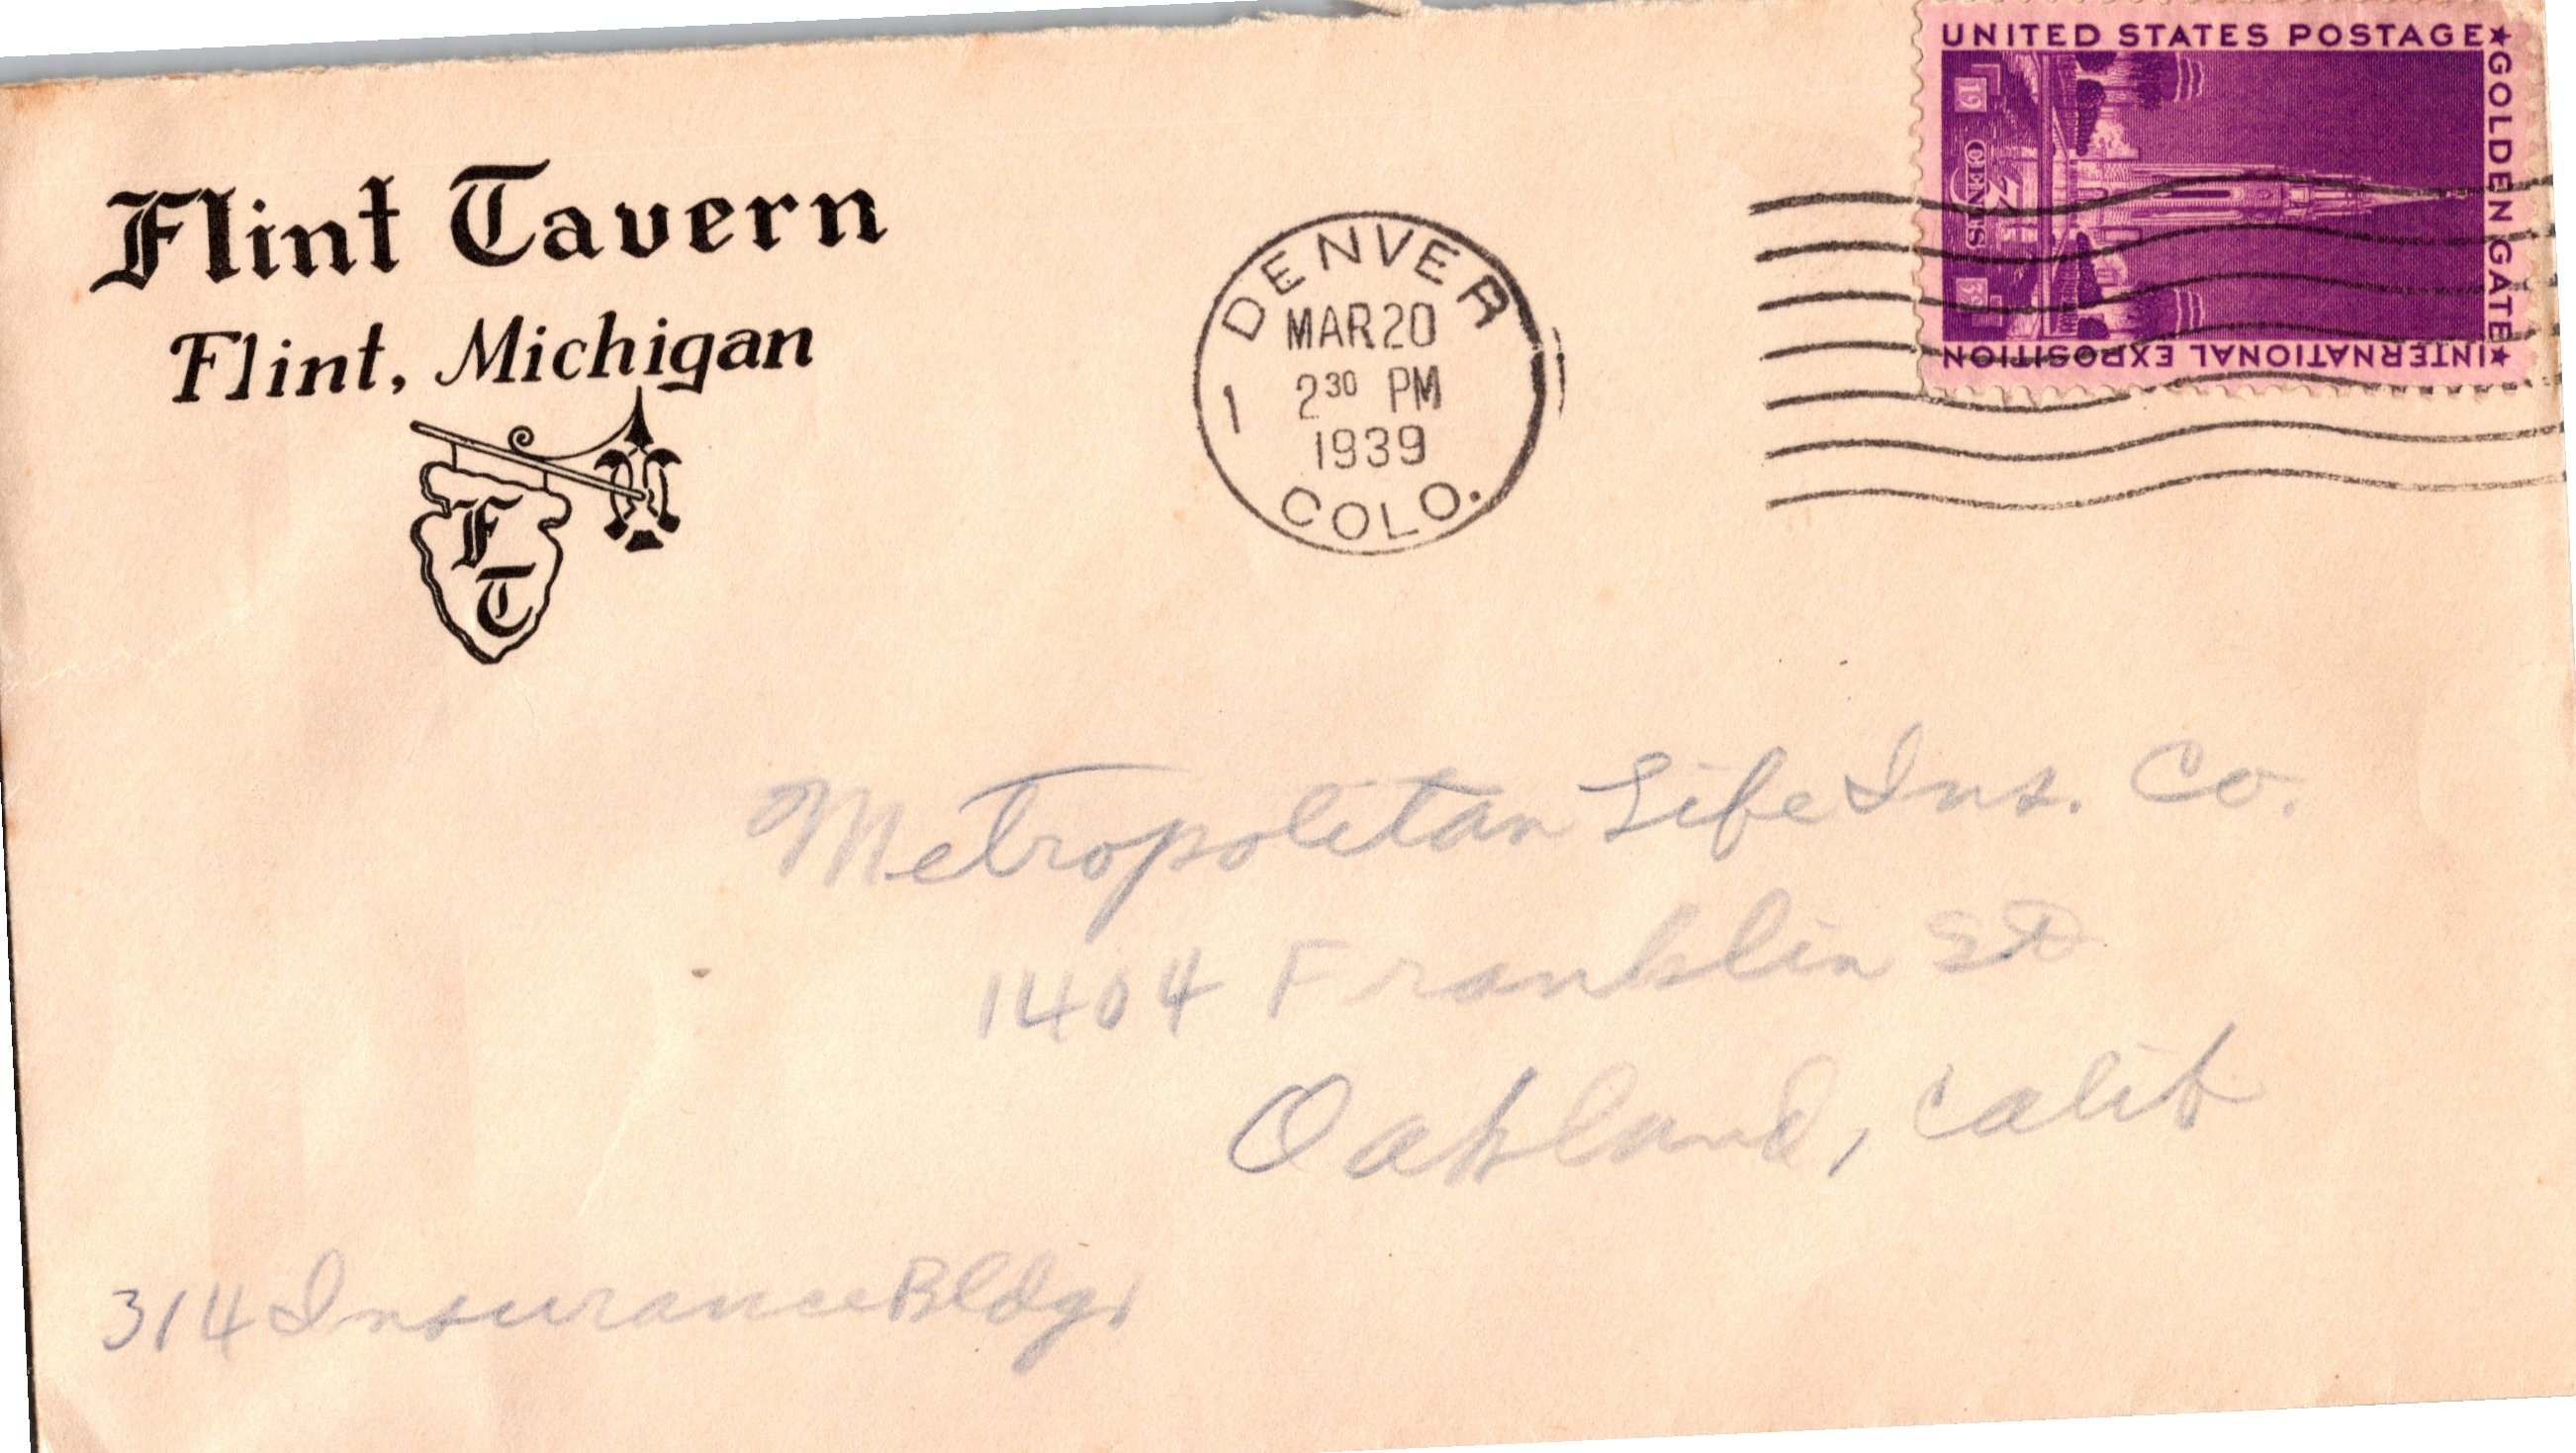 Flint Tavern
Flint, Michigan
F
T
DENVER
MAR 20
1 2³⁰ PM
1939
COLO.
UNITED STATES POSTAGE
★ GOLDEN GATE ★
INTERNATIONAL EXPOSITION
19 3 CENTS 39
Metropolitan Life Ins. Co.
1404 Franklin St
Oakland, Calif
314 Insurance Bldg.